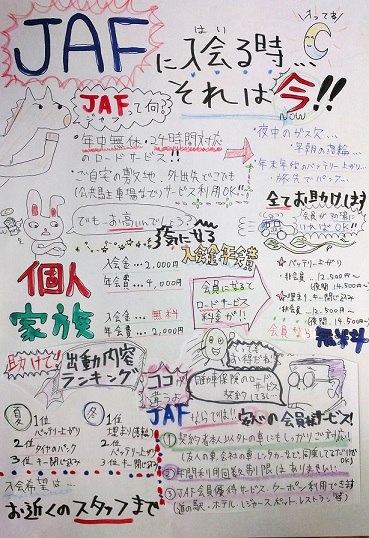 JAFに入会る時…
はい
それは今!!
NOW
JAFって何?
ジャフ
・年中無休・24時間対応
のロードサービス!!
・ご自宅の敷地・外出先どこでも
(公共駐車場など)サービス利用OK!!
・夜中のガス欠…
・早朝の
・年末年始のバッテリー上がり…
・旅先でパンク…
全てお助けします
会員が
いればOK!!
でも…お高いんでしょう?
気になる
入会金・年会費
個人
入会金…2,000円
年会費…4,000円
家族
入会金…無料
年会費…2,000円
会員になると
ロードサービス
料金が!!
☆バッテリー上がり
・非会員…12,500円〜
(夜間14,500円〜)
☆キー閉じ込み
・非会員…12,500円〜
(夜間14,500円〜)
会員なら無料
助けて!!
出動内容
ランキング
夏
1位
バッテリー上がり
2位
タイヤのパンク
3位 キー閉じ込み
冬
1位
2位
バッテリー上がり
3位 キー閉じ込み
入会希望は…
お近くのスタッフまで
ココが
違うの
JAF
ならでは!!
安心の会員サービス!
①契約者本人以外の車にもしっかりご対応
(友人の車、会社の車、レンタカーなど、同乗してるだけでOK)
②年間利用回数制限はありません
③JAF会員優待サービス・クーポン利用でお得
(道の駅・ホテル・レジャースポット・レストラン等)